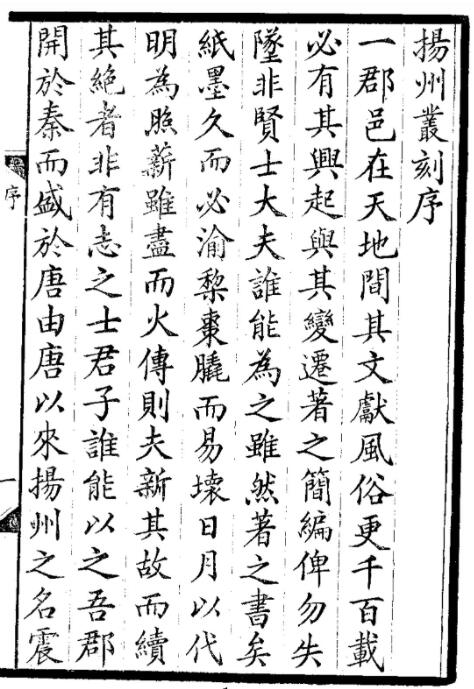 揚州叢刻序
一郡邑在天地間其文獻風俗更千百載
必有其興起與其變遷著之簡編俾勿失
墜非賢士大夫誰能為之雖然著之書矣
紙墨久而必渝棃棗膬而易壞日月以代
明為照薪雖盡而火傳則夫新其故而續
其絕者非有志之士君子誰能以之吾郡
開於秦而盛於唐由唐以來揚州之名震
序
一